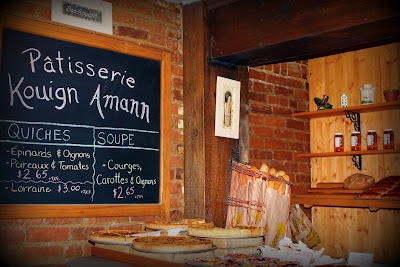 Pâtisserie
Kouign Amann
QUICHES
- Epinards & Oignons
- Poireaux & Tomates
$2.65
- Lorraine $3.00
SOUPE
- Courges,
Carottes & Oignons
$2.65